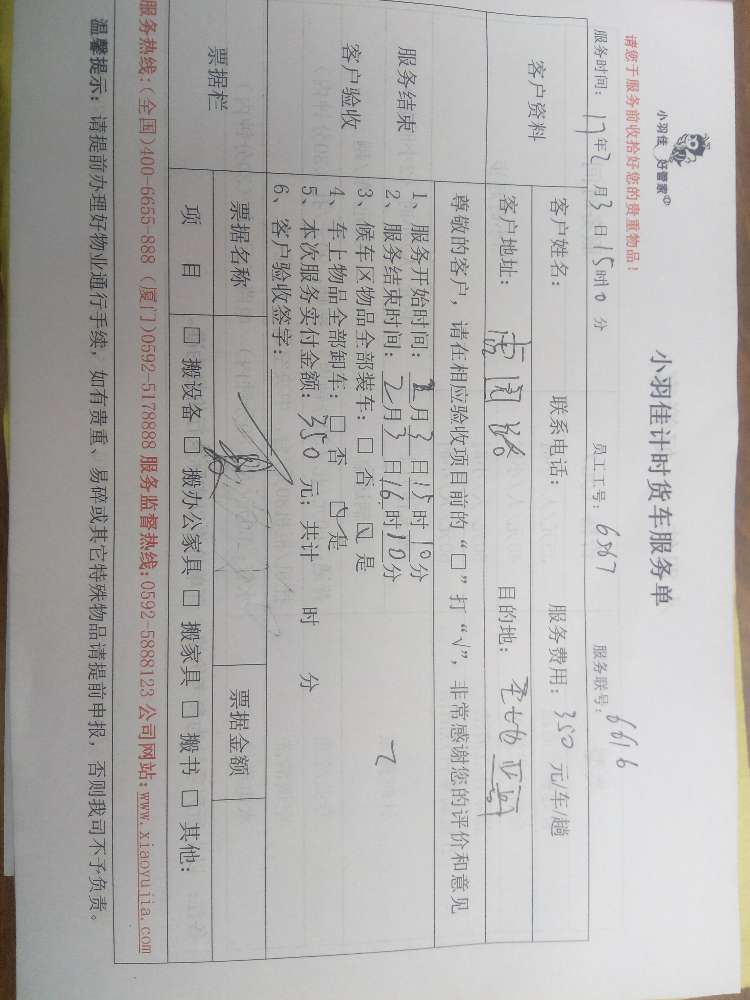 小羽佳 好管家
小羽佳计时货车服务单
请您于服务前收拾好您的贵重物品！
服务时间：17年2月3日15时10分 员工工号：6567 服务联号：6616
客户资料
客户姓名： 联系电话： 服务费用：350 元/车/趟
客户地址： 目的地：
服务结束
客户验收
尊敬的客户，请在相应验收项目前的“□”打“√”，非常感谢您的评价和意见
1、服务开始时间：2月3日15时10分
2、服务结束时间：2月3日16时10分
3、候车区物品全部装车：□ 否 ☑ 是
4、车上物品全部卸车：□ 否 ☑ 是
5、本次服务实付金额：350 元；共计 时 分
6、客户验收签字：
票据栏
票据名称 票据金额
项 目 □ 搬设备 □ 搬办公家具 □ 搬家具 □ 搬书 □ 其他：
服务热线：(全国)400-6655-888 (厦门)0592-5178888 服务监督热线：0592-5888123 公司网站：www.xiaoyujia.com
温馨提示：请提前办理好物业通行手续，如有贵重、易碎或其它特殊物品请提前申报，否则我司不予负责。